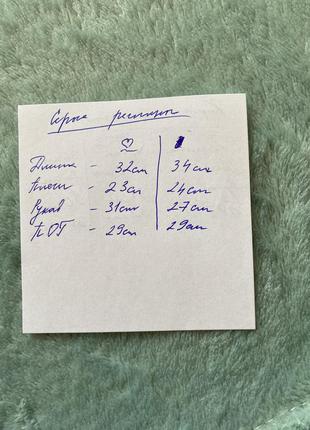 Серы
Длина - 32см 34см
Плечи - 23см 24см
Рукав - 31см 27см
ПОГ - 29см 29см